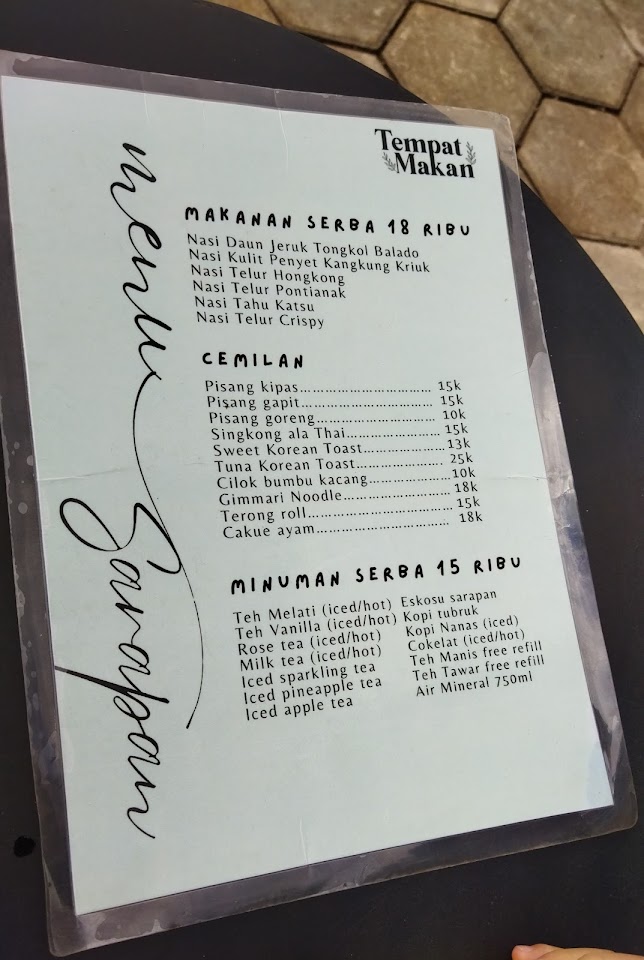 Tempat
Makan
menu Sarapan
MAKANAN SERBA 18 RIBU
Nasi Daun Jeruk Tongkol Balado
Nasi Kulit Penyet Kangkung Kriuk
Nasi Telur Hongkong
Nasi Telur Pontianak
Nasi Tahu Katsu
Nasi Telur Crispy
CEMILAN
Pisang kipas................................ 15k
Pisang gapit................................ 15k
Pisang goreng............................. 10k
Singkong ala Thai....................... 15k
Sweet Korean Toast.................... 13k
Tuna Korean Toast..................... 25k
Cilok bumbu kacang.................... 10k
Gimmari Noodle.......................... 18k
Terong roll................................... 15k
Cakue ayam................................ 18k
MINUMAN SERBA 15 RIBU
Teh Melati (iced/hot)
Teh Vanilla (iced/hot)
Rose tea (iced/hot)
Milk tea (iced/hot)
Iced sparkling tea
Iced pineapple tea
Iced apple tea
Eskosu sarapan
Kopi tubruk
Kopi Nanas (iced)
Cokelat (iced/hot)
Teh Manis free refill
Teh Tawar free refill
Air Mineral 750ml